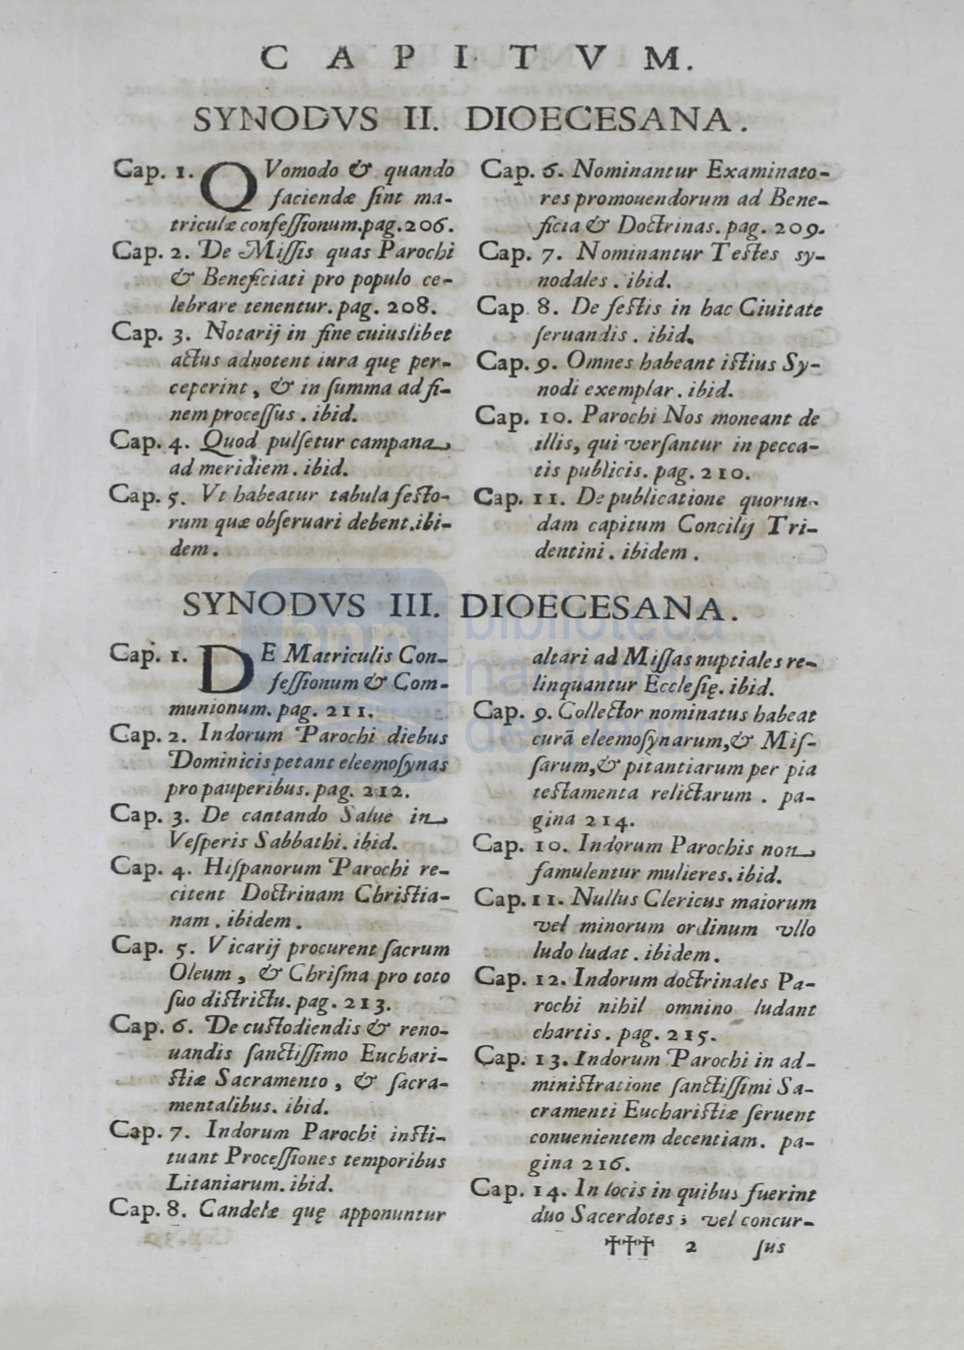 CAPITVM.
SYNODVS II. DIOECESANA.
Cap. 1. QVomodo & quando
faciendæ sint ma-
triculæ confessionum.pag.206.
Cap. 2. De Missis quas Parochi
& Beneficiati pro populo ce-
lebrare tenentur.pag. 208.
Cap. 3. Notarij in fine cuiuslibet
actus adnotent iura quę per-
ceperint, & in summa ad fi-
nem processus. ibid.
Cap. 4. Quod pulsetur campana
ad meridiem. ibid.
Cap. 5. Vt habeatur tabula festo-
rum quæ obseruari debent.ibi-
dem.
Cap. 6. Nominantur Examinato-
res promouendorum ad Bene-
ficia & Doctrinas.pag. 209.
Cap. 7. Nominantur Testes sy-
nodales. ibid.
Cap 8. De festis in hac Ciuitate
seruandis. ibid.
Cap. 9. Omnes habeant istius Sy-
nodi exemplar. ibid.
Cap. 10. Parochi Nos moneant de
illis, qui versantur in pecca-
tis publicis. pag. 210.
Cap. 11. De publicatione quorun-
dam capitum Concilij Tri-
dentini. ibidem.
SYNODVS III. DIOECESANA.
Cap. 1. DE Matriculis Con-
fessionum & Com-
munionum. pag. 211.
Cap. 2. Indorum Parochi diebus
Dominicis petant eleemosynas
pro pauperibus. pag. 212.
Cap. 3. De cantando Salue in
Vesperis Sabbathi. ibid.
Cap. 4. Hispanorum Parochi re-
citent Doctrinam Christia-
nam. ibidem.
Cap. 5. Vicarij procurent sacrum
Oleum, & Chrisma pro toto
suo districtu. pag. 213.
Cap. 6. De custodiendis & reno-
uandis sanctissimo Euchari-
stiæ Sacramento, & sacra-
mentalibus. ibid.
Cap. 7. Indorum Parochi insti-
tuant Processiones temporibus
Litaniarum. ibid.
Cap. 8. Candelæ quę apponuntur
altari ad Missas nuptiales re-
linquantur Ecclesię. ibid.
Cap. 9. Collector nominatus habeat
curã eleemosynarum,& Mis-
sarum,& pitantiarum per pia
testamenta relictarum. pa-
gina 214.
Cap. 10. Indorum Parochis non
famulentur mulieres. ibid.
Cap. 11. Nullus Clericus maiorum
vel minorum ordinum vllo
ludo ludat. ibidem.
Cap. 12. Indorum doctrinales Pa-
rochi nihil omnino ludant
chartis. pag. 215.
Cap. 13. Indorum Parochi in ad-
ministratione sanctissimi Sa-
cramenti Eucharistiæ seruent
conuenientem decentiam. pa-
gina 216.
Cap. 14. In locis in quibus fuerint
duo Sacerdotes; vel concur-
††† 2 sus